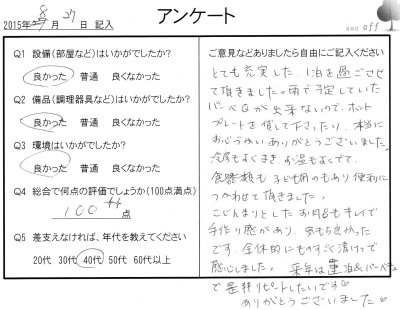 アンケート
2015年8月27日 記入
off
Q1 設備(部屋など)はいかがでしたか?
良かった 普通 良くなかった
Q2 備品(調理器具など)はいかがでしたか?
良かった 普通 良くなかった
Q3 環境はいかがでしたか?
良かった 普通 良くなかった
Q4 総合で何点の評価でしょうか(100点満点)
100 点
Q5 差支えなければ、年代を教えてください
20代 30代 40代 50代 60代以上
ご意見などありましたら自由にご記入ください
とても充実した、1泊を過ごさせ
て頂きました。雨で予定していた
バーベQが出来ないので、ホット
プレートを貸して下さったり、本当に
おこづかいありがとうございました。
冷房もよくきき、お湯もよくでて、
食器類も子ども用のもあり便利に
つかわせて頂きました。
こじんまりとした お部屋もキレイで
手作り感があり、気もち良かった
です。全体的にものすごく清けつで
感心しました。来年は連泊&バーベキュ
で是非リピートしたいです♡
ありがとうございました♡